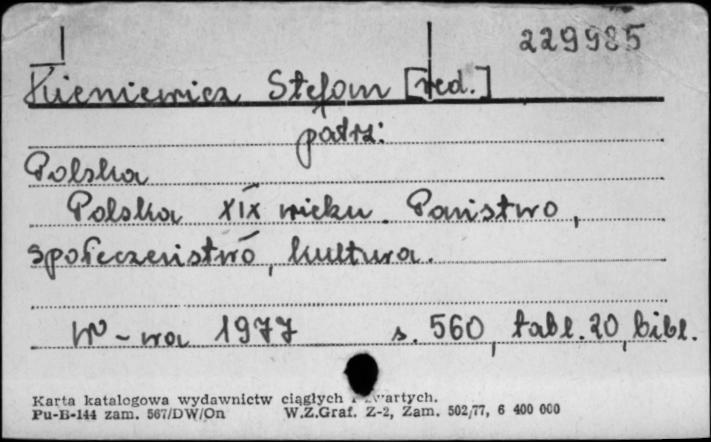 229985
Kieniewicz Stefan [red.]
patrz:
Polska
Polska XIX wieku. Państwo,
społeczeństwo, kultura.
W-wa 1977 s. 560, tabl. 20, bibl.
Karta katalogowa wydawnictw ciągłych i zwartych.
Pu-B-144 zam. 567/DW/On W.Z.Graf. Z-2, Zam. 502/77, 6 400 000